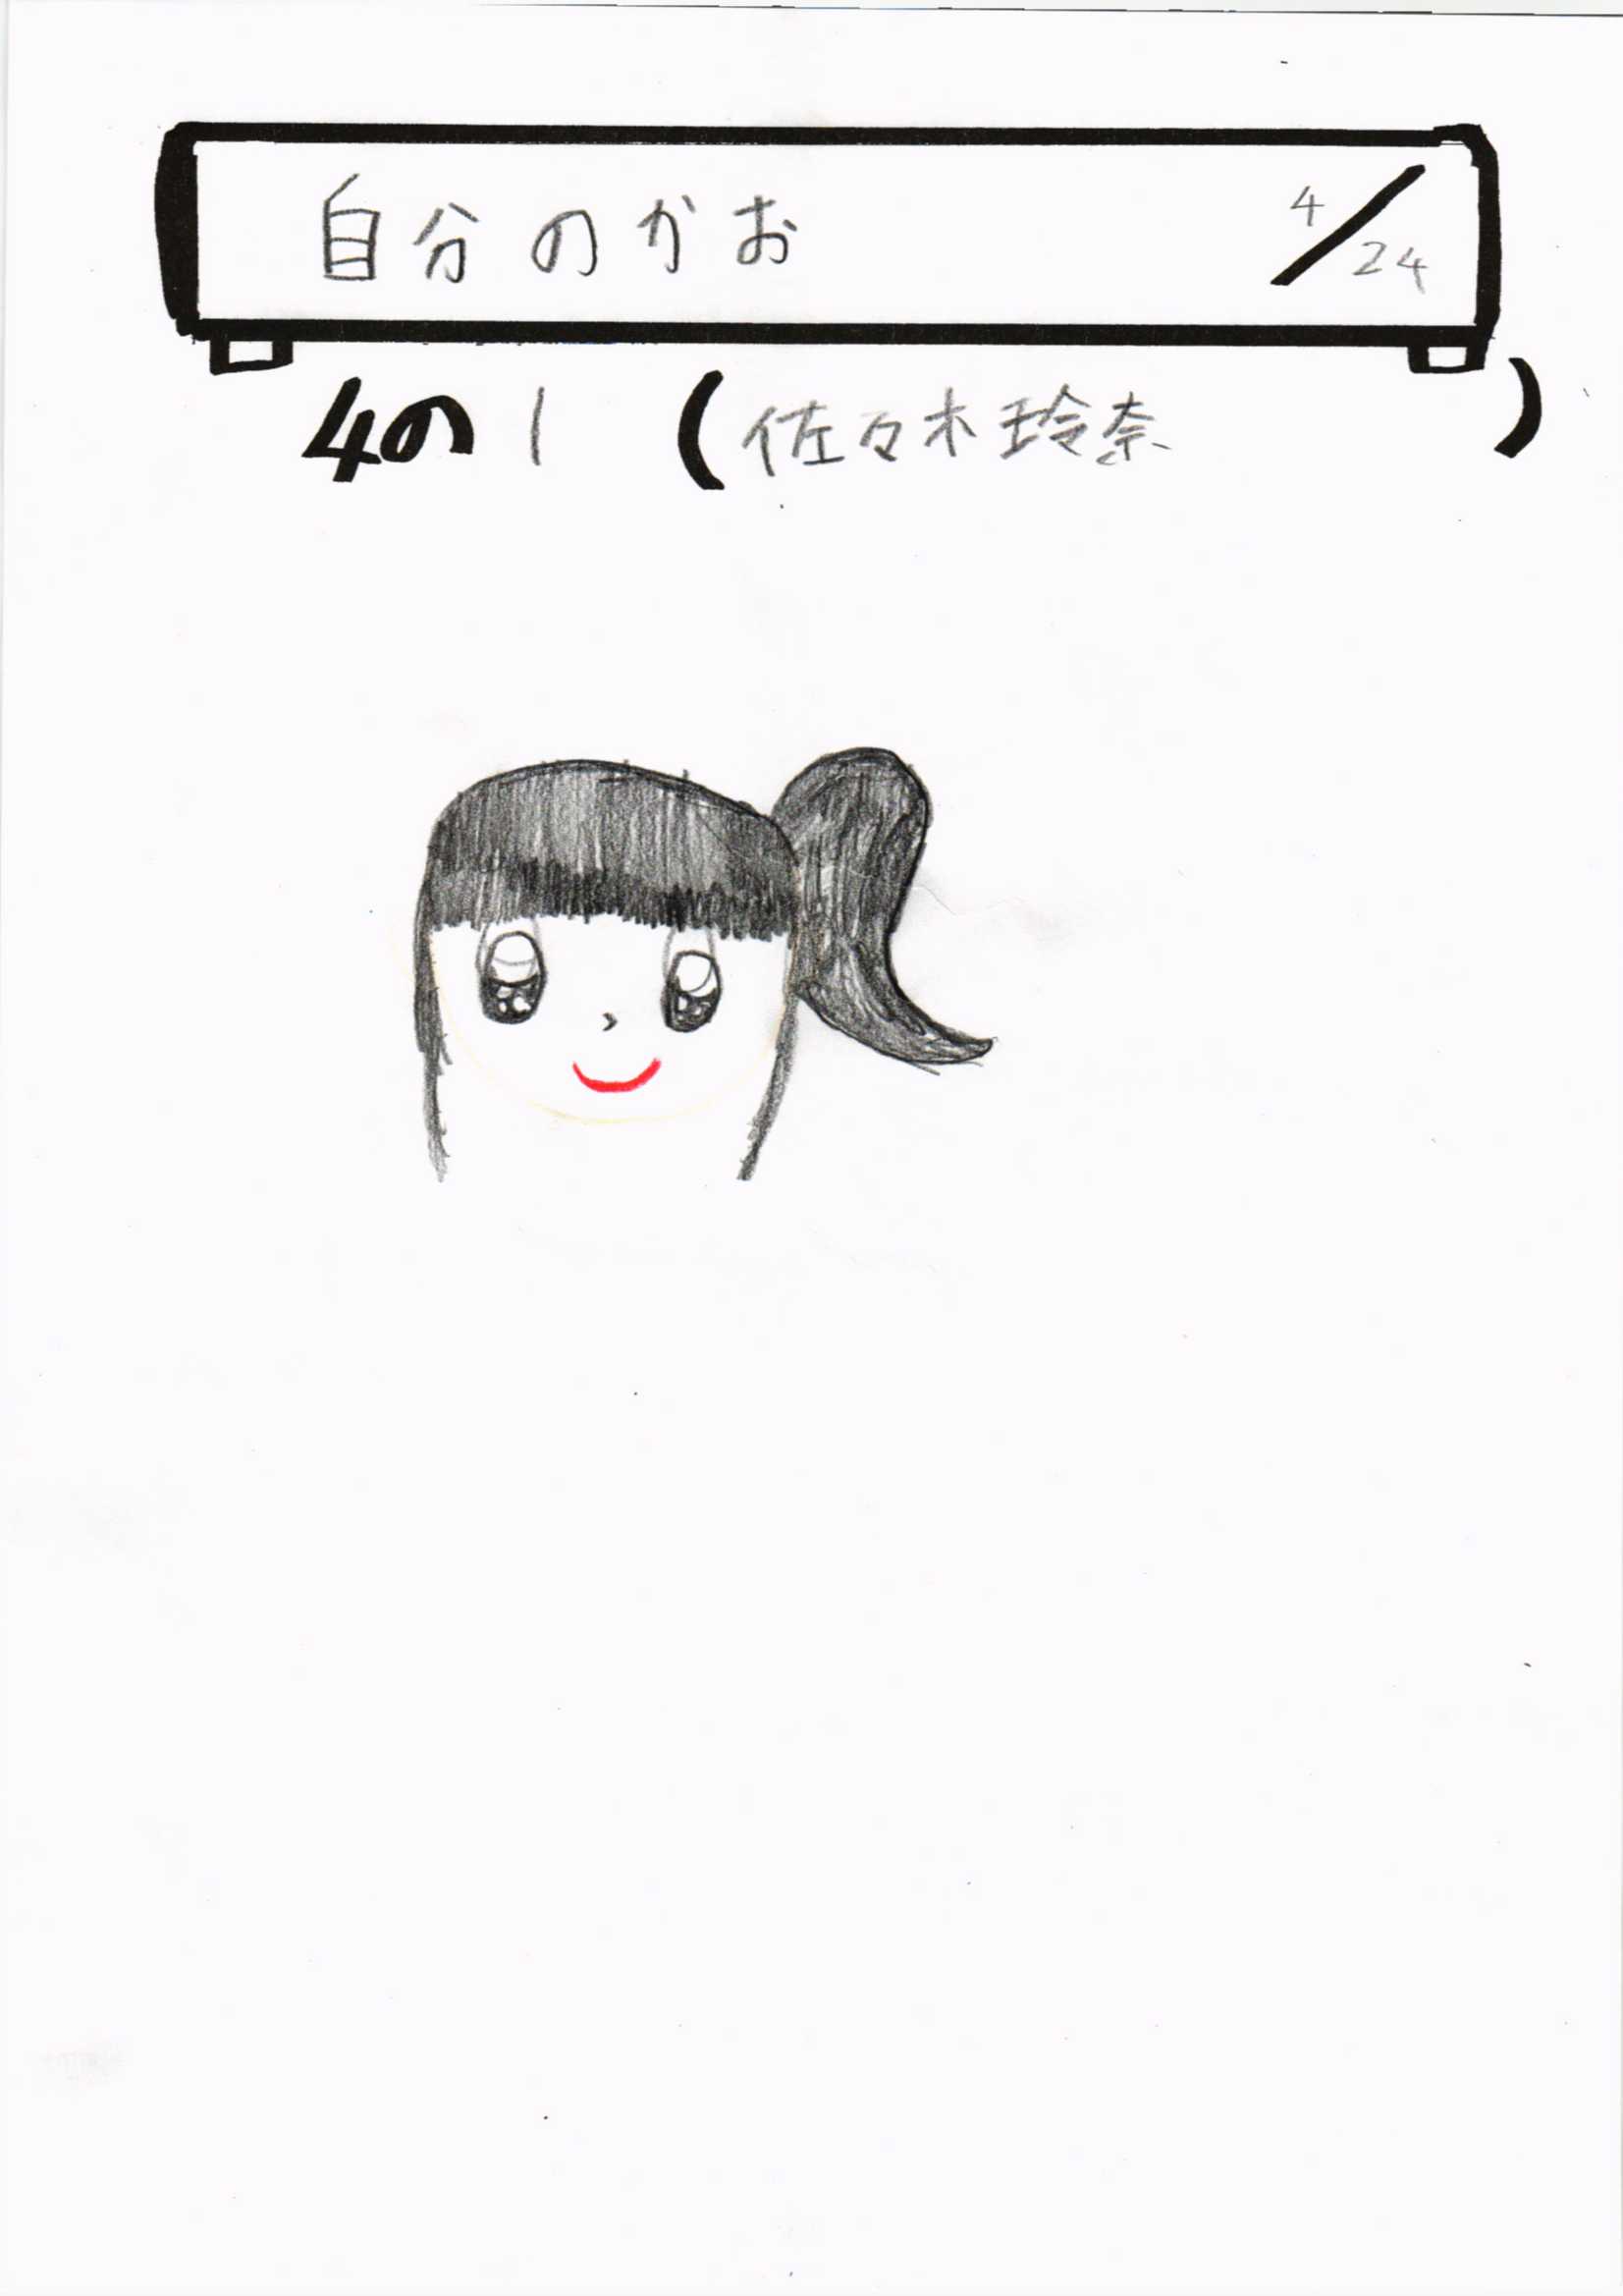 自分のかお 4/24
4の1 (佐々木玲奈)